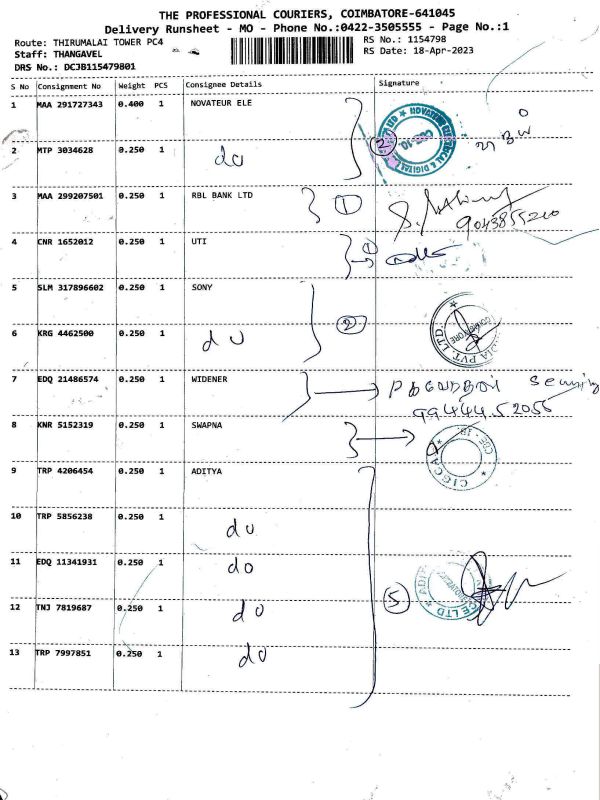 THE PROFESSIONAL COURIERS, COIMBATORE-641045
Delivery Runsheet - MO - Phone No.:0422-3505555 - Page No.:1
Route: THIRUMALAI TOWER PC4
RS No.: 1154798
Staff: THANGAVEL
RS Date: 18-Apr-2023
DRS No.: DCJB115479801
S No Consignment No Weight PCS Consignee Details Signature
1 MAA 291727343 0.400 1 NOVATEUR ELE
2
2 MTP 3034628 0.250 1 do
3 MAA 299207501 0.250 1 RBL BANK LTD 1
9043855200
4 CNR 1652012 0.250 1 UTI 1
5 SLM 317896602 0.250 1 SONY
2
6 KRG 4462500 0.250 1 do
7 EDQ 21486574 0.250 1 WIDENER
9944452056
8 KNR 5152319 0.250 1 SWAPNA
9 TRP 4206454 0.250 1 ADITYA
10 TRP 5856238 0.250 1 do
11 EDQ 11341931 0.250 1 do
5
12 TNJ 7819687 0.250 1 do
13 TRP 7997851 0.250 1 do